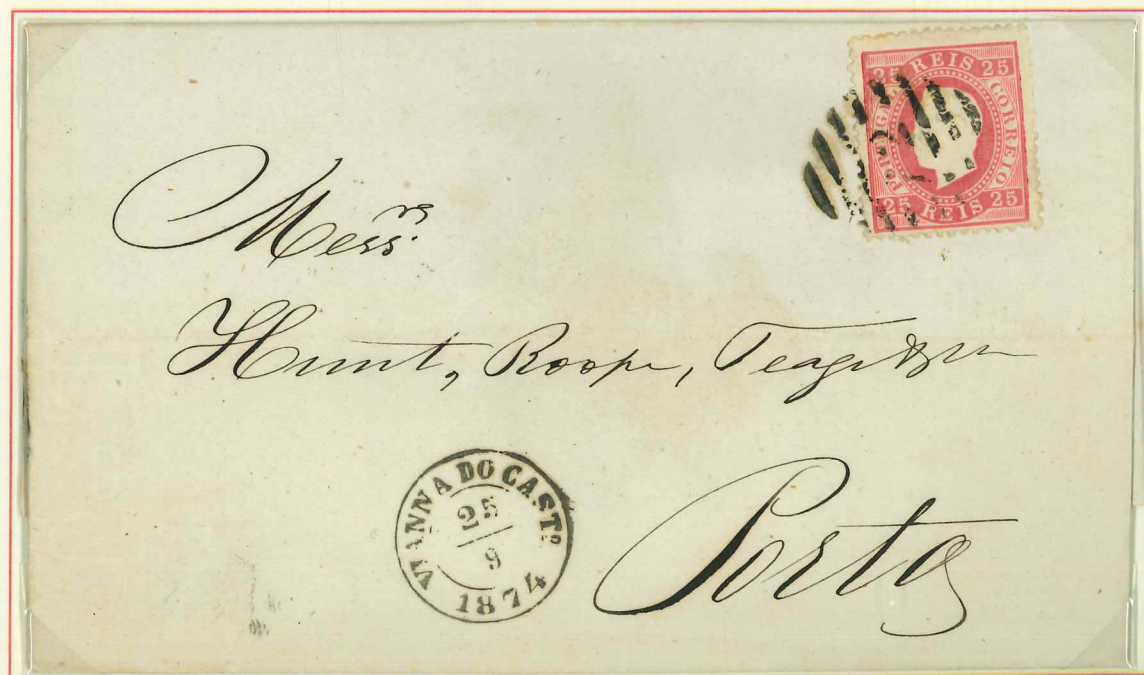 25 REIS 25
PORTUGAL
CORREIO
25 REIS 25
Mess.rs
Hunt, Roope, Teage & Co
Porto
VIANNA DO CAST.o
25
9
1874